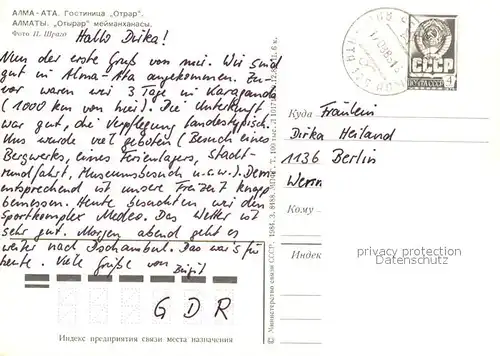 АЛМА-АТА. Гостиница „Отрар".
АЛМАТЫ. „Отырар" мейманханасы.
Фото П. Шраго
Hallo Dirka!
Nun der erste Gruß von mir. Wir sind
gut in Alma-Ata angekommen. Zu-
vor waren wir 3 Tage in Karaganda
(1000 km von hier). Die Unterkunft
war gut, die Verpflegung landestypisch.
Uns wurde viel geboten (Besuch eines
Bergwerks, eines Ferienlagers, Stadt-
rundfahrt, Museumsbesuch u.s.w.). Dem-
entsprechend ist unsere Freizeit knapp
bemessen. Heute besuchten wir den
Sportkomplex Medeo. Das Wetter ist
sehr gut. Morgen abend geht es
weiter nach Dschambul. Das war's für
heute. Viele Grüße von Birgit
GDR
Индекс предприятия связи места назначения
© Министерство связи СССР. 1984.
СССР
4
Куда
Fräulein
Dirka Heiland
1136 Berlin
Кому
Индек
privacy protection
Datenschutz